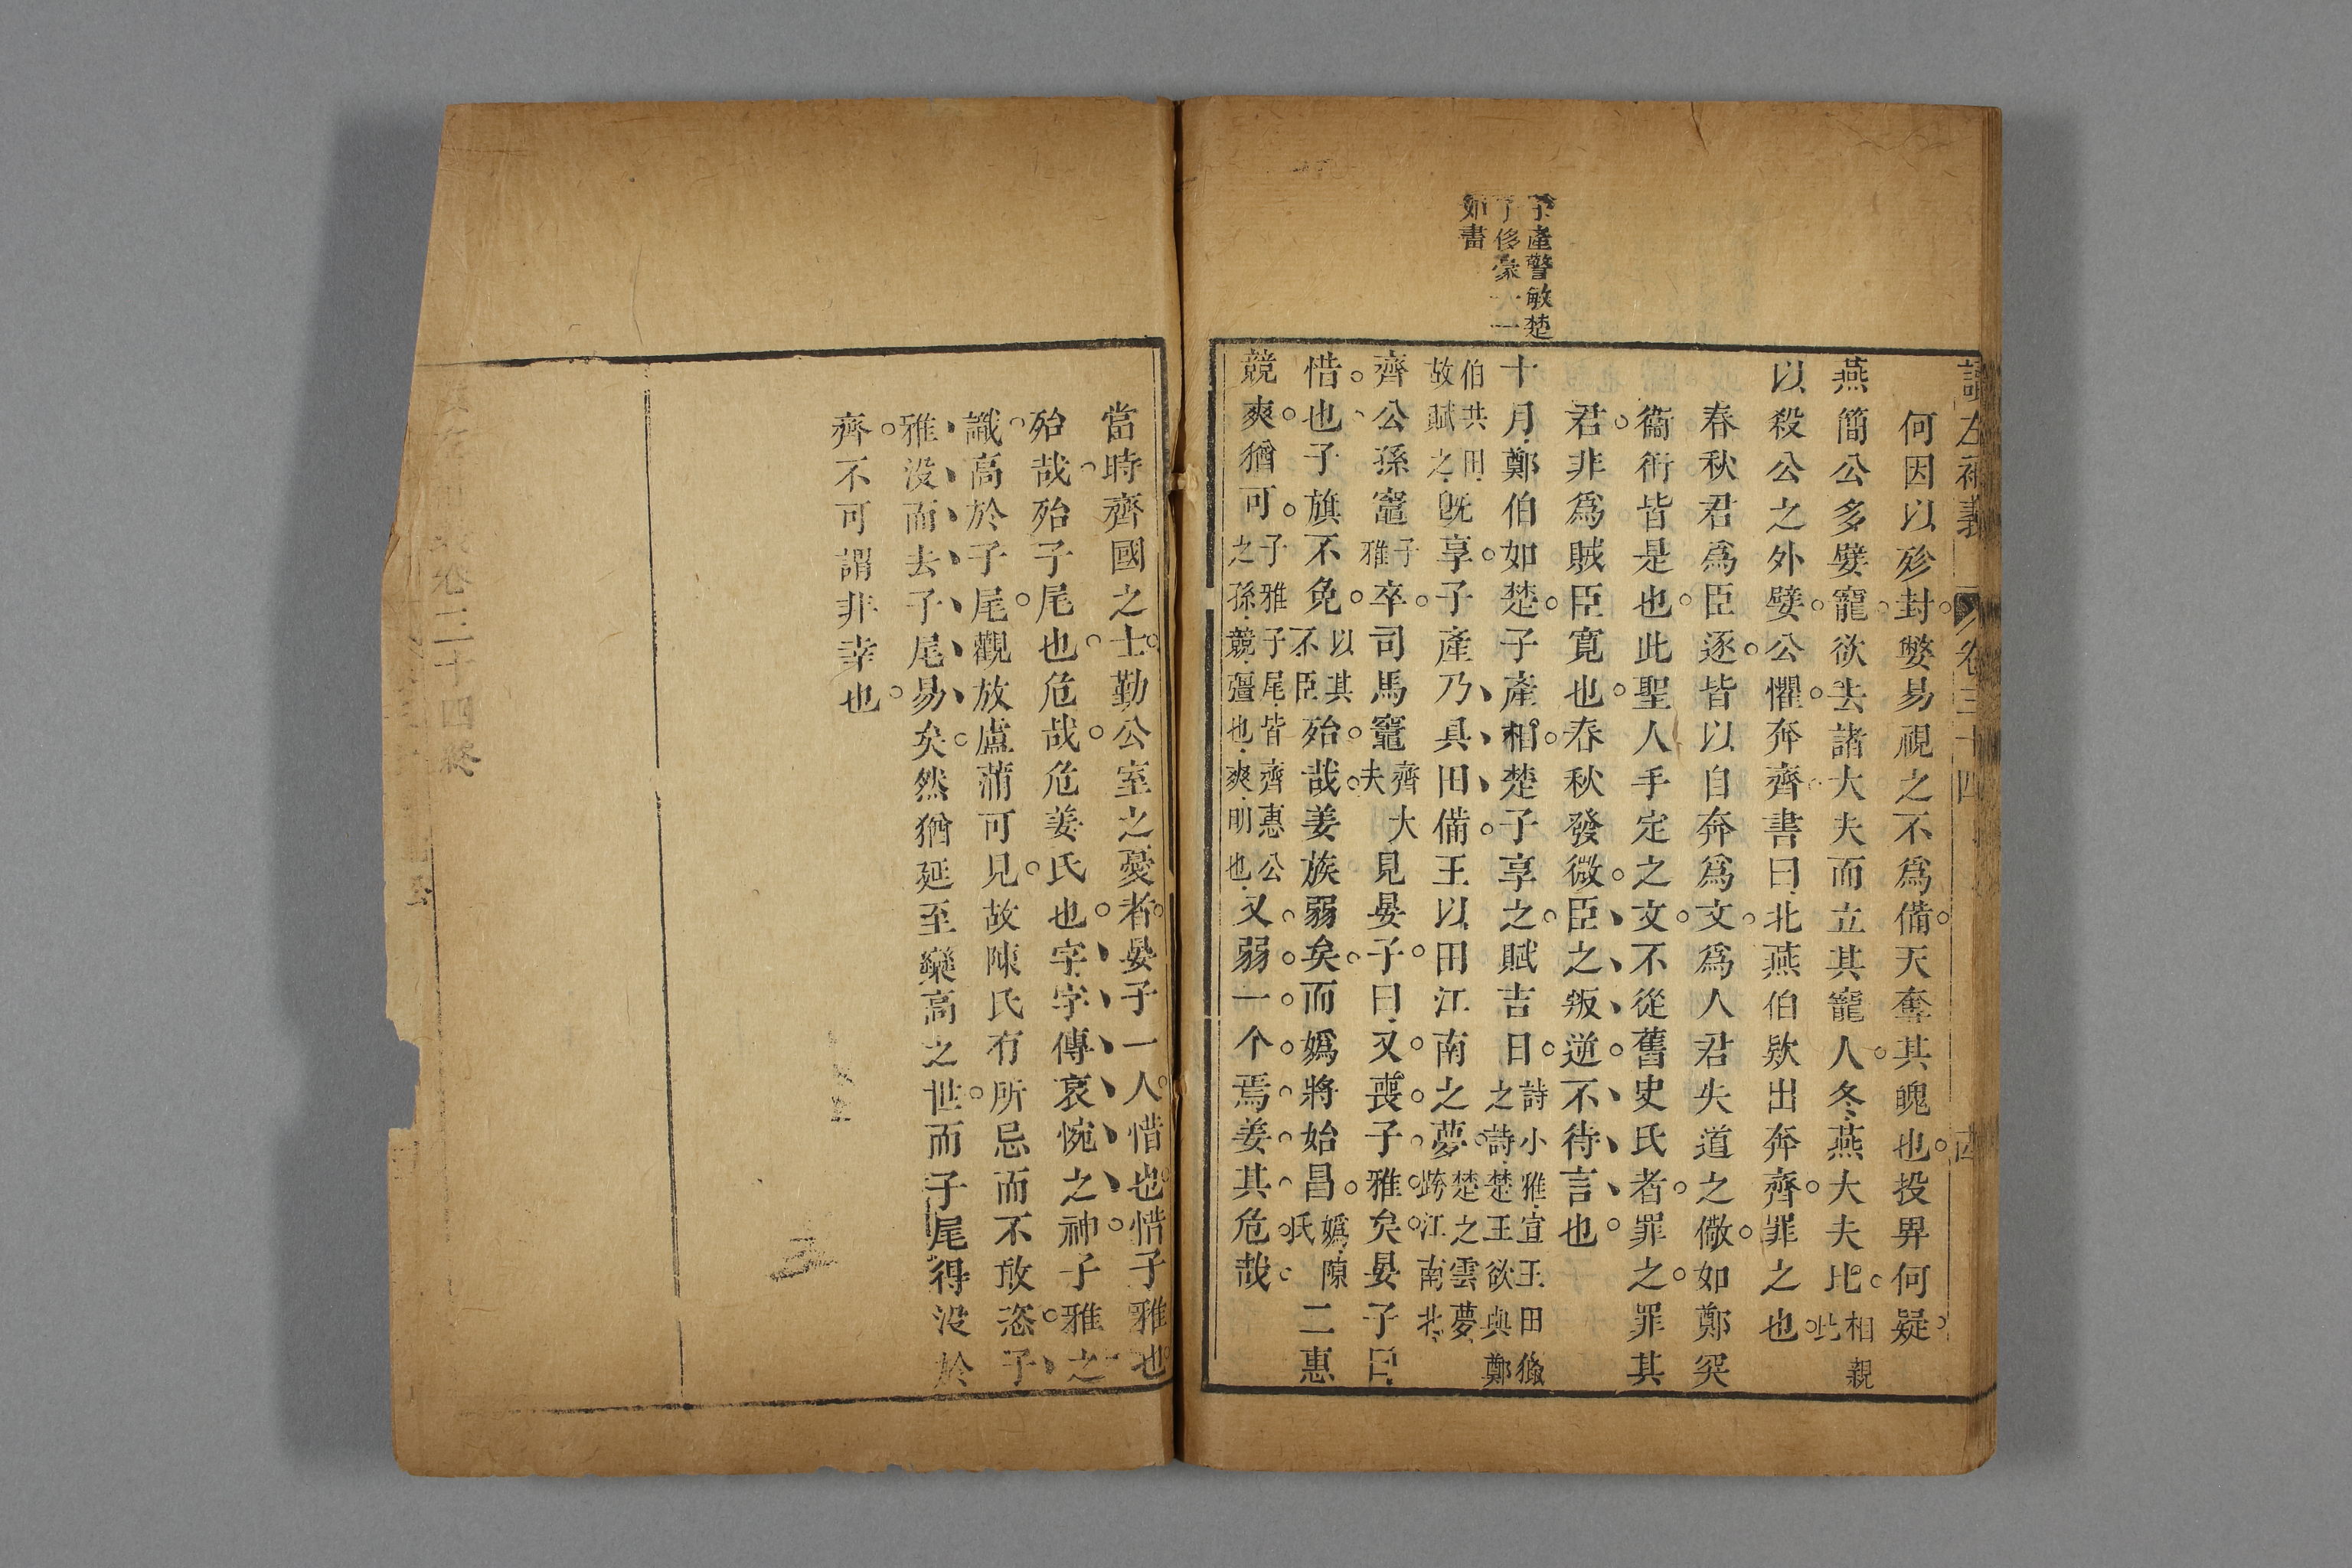 讀左補義 卷三十四
何因以殄封嫳易視之不爲備天奪其魄也投畀何疑
燕簡公多嬖寵欲去諸大夫而立其寵人冬燕大夫比相親比
以殺公之外嬖公懼奔齊書曰北燕伯欵出奔齊罪之也
春秋君爲臣逐皆以自奔爲文爲人君失道之儆如鄭突
衞衎皆是也此聖人手定之文不從舊史氏者罪之罪其
君非爲賊臣寬也春秋發微臣之叛逆不待言也
子產警敏楚
子侈豪一一
如畫
十月鄭伯如楚子產相楚子享之賦吉日詩小雅宣王田獵之詩楚王欲與鄭
伯共田故賦之既享子產乃具田備王以田江南之夢楚之雲夢跨江南北
齊公孫竈子雅卒司馬竈齊大夫見晏子曰又喪子雅矣晏子曰
惜也子旗不免以其不臣殆哉姜族弱矣而嬀將始昌嬀陳氏二惠
競爽猶可子雅子尾皆齊惠公之孫競彊也爽明也又弱一个焉姜其危哉
當時齊國之士勤公室之憂者晏子一人惜也惜子雅也
殆哉殆子尾也危哉危姜氏也字字傳哀惋之神子雅之
識高於子尾觀放盧蒲可見故陳氏有所忌而不敢恣子
雅没而去子尾易矣然猶延至欒高之世而子尾得没於
齊不可謂非幸也
卷三十四終